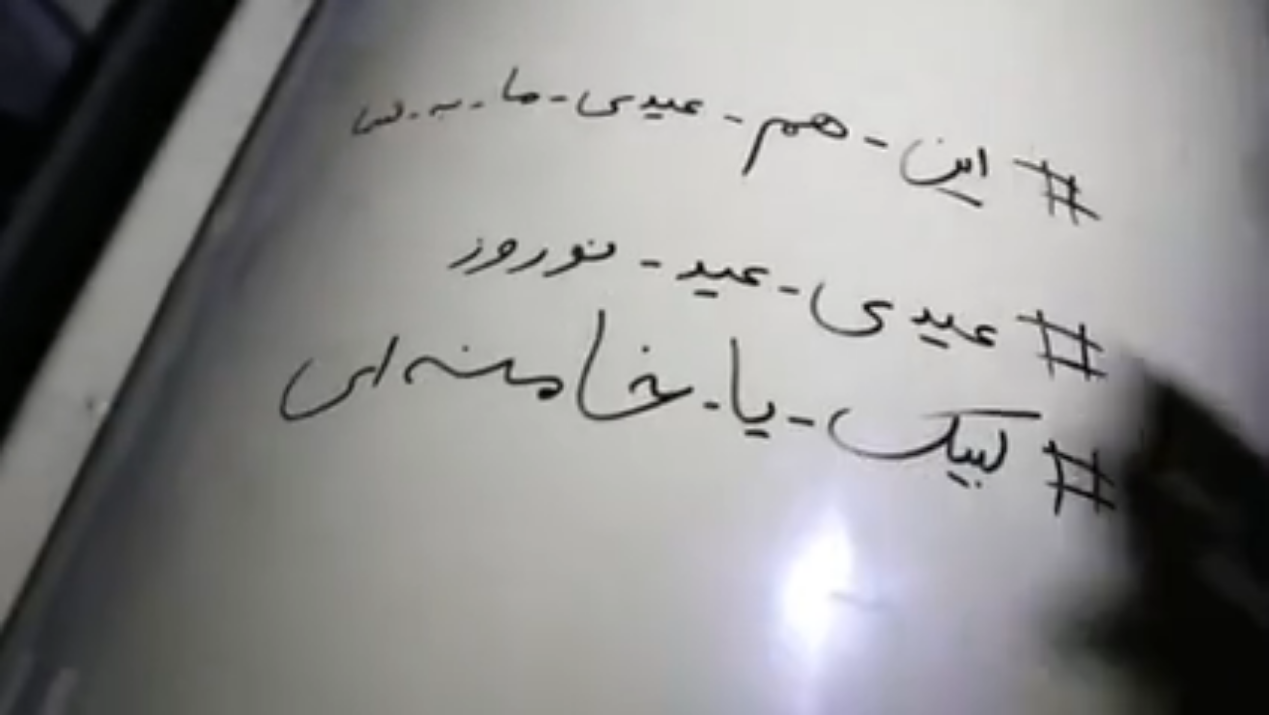 #این-هم-عیدی-ما-به-س
#عیدی-عید-نوروز
#لبیک-یا-خامنه‌ای